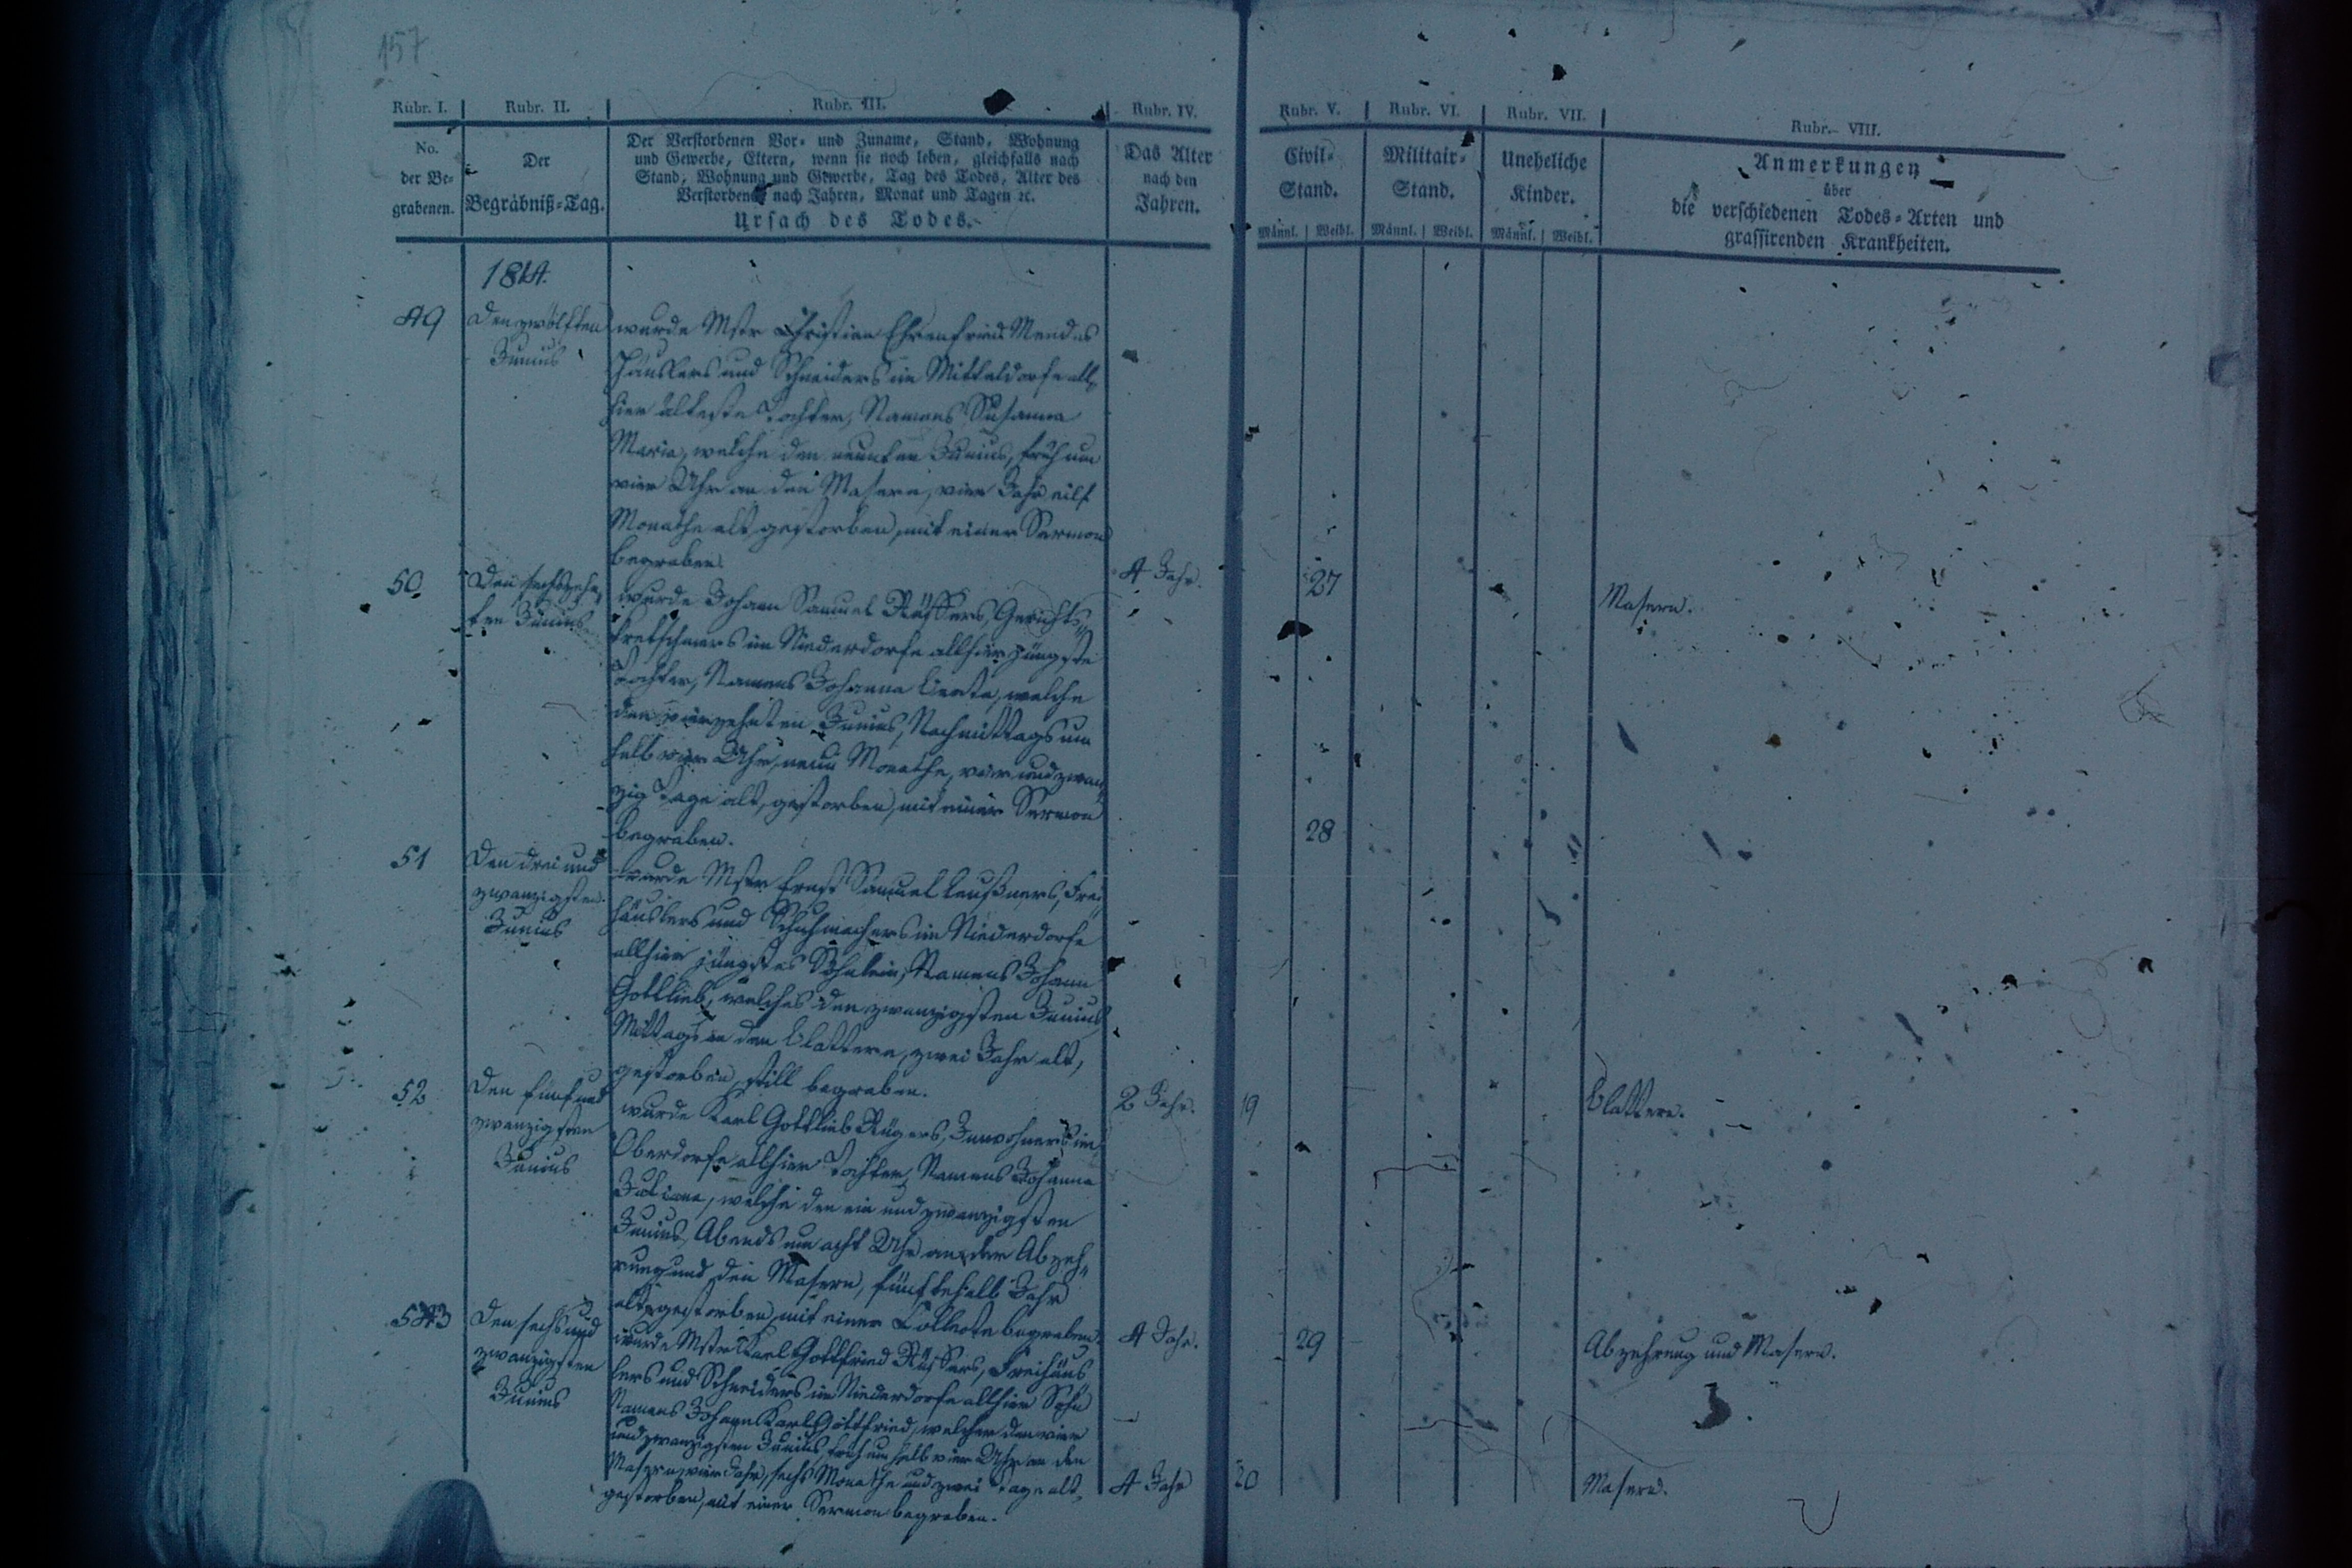 157
Rubr. I. Rubr. II. Rubr. III. Rubr. IV. Rubr. V. Rubr. VI. Rubr. VII. Rubr. VIII.
No.
der Be-
grabenen.
Der
Begräbniß-Tag.
Der Verstorbenen Vor- und Zuname, Stand, Wohnung
und Gewerbe, Eltern, wenn sie noch leben, gleichfalls nach
Stand, Wohnung und Gewerbe, Tag des Todes, Alter des
Verstorbenen nach Jahren, Monat und Tagen ꝛc.
Ursach des Todes.
Das Alter
nach den
Jahren.
Civil-
Stand.
Männl. Weibl.
Militair-
Stand.
Männl. Weibl.
Uneheliche
Kinder.
Männl. Weibl.
Anmerkungen
über
die verschiedenen Todes-Arten und
grassirenden Krankheiten.
1814.
49
Den zwölften
Junius
wurde Mstr Christian Ehrenfried Mendes
Häuslers und Schneiders im Mitteldorfe all-
hier älteste Tochter, Namens Susanna
Maria, welche den neunten Junius, früh um
vier Uhr an den Masern, vier Jahr eilf
Monathe alt gestorben, mit einer Sermon
begraben.
4 Jahr.
27
Masern.
50
Den sechszehn-
ten Junius
wurde Johann Samuel Gerichts-
kretschmers im Niederdorfe allhier jüngste
Tochter, Namens Johanna welche
den vierzehnten Junius, Nachmittags um
halb vier Uhr, neun Monathe, vier und zwan-
zig Tage alt, gestorben, mit einer Sermon
begraben.
28
51
Den drei und
zwanzigsten
Junius
wurde Mstr Ernst Samuel Leußners, Frei-
häuslers und Schuhmachers im Niederdorfe
allhier jüngstes Söhnlein, Namens Johann
Gottlieb, welches den zwanzigsten Junius
Mittags an den Blattern, zwei Jahr alt,
gestorben, still begraben.
2 Jahr.
19
Blattern.
52
Den fünf und
zwanzigsten
Junius
wurde Karl Gottlieb Rügers, Inwohners im
Oberdorfe allhier Tochter, Namens Johanna
Juliana, welche den ein und zwanzigsten
Junius, Abends um acht Uhr an der Abzeh-
rung und den Masern, fünftehalb Jahr
alt, gestorben, mit einer Collecte begraben.
4 Jahr.
29
Abzehrung und Masern.
53
Den sechs und
zwanzigsten
Junius
wurde Mstr Karl Gottfried Freihäus-
lers und Schneiders im Niederdorfe allhier Sohn
Namens Johann Karl Gottfried, welcher den vier
und zwanzigsten Junius, früh um halb vier Uhr an den
Masern, vier Jahr, sechs Monathe und zwei Tage alt,
gestorben, mit einer Sermon begraben.
4 Jahr
20
Masern.